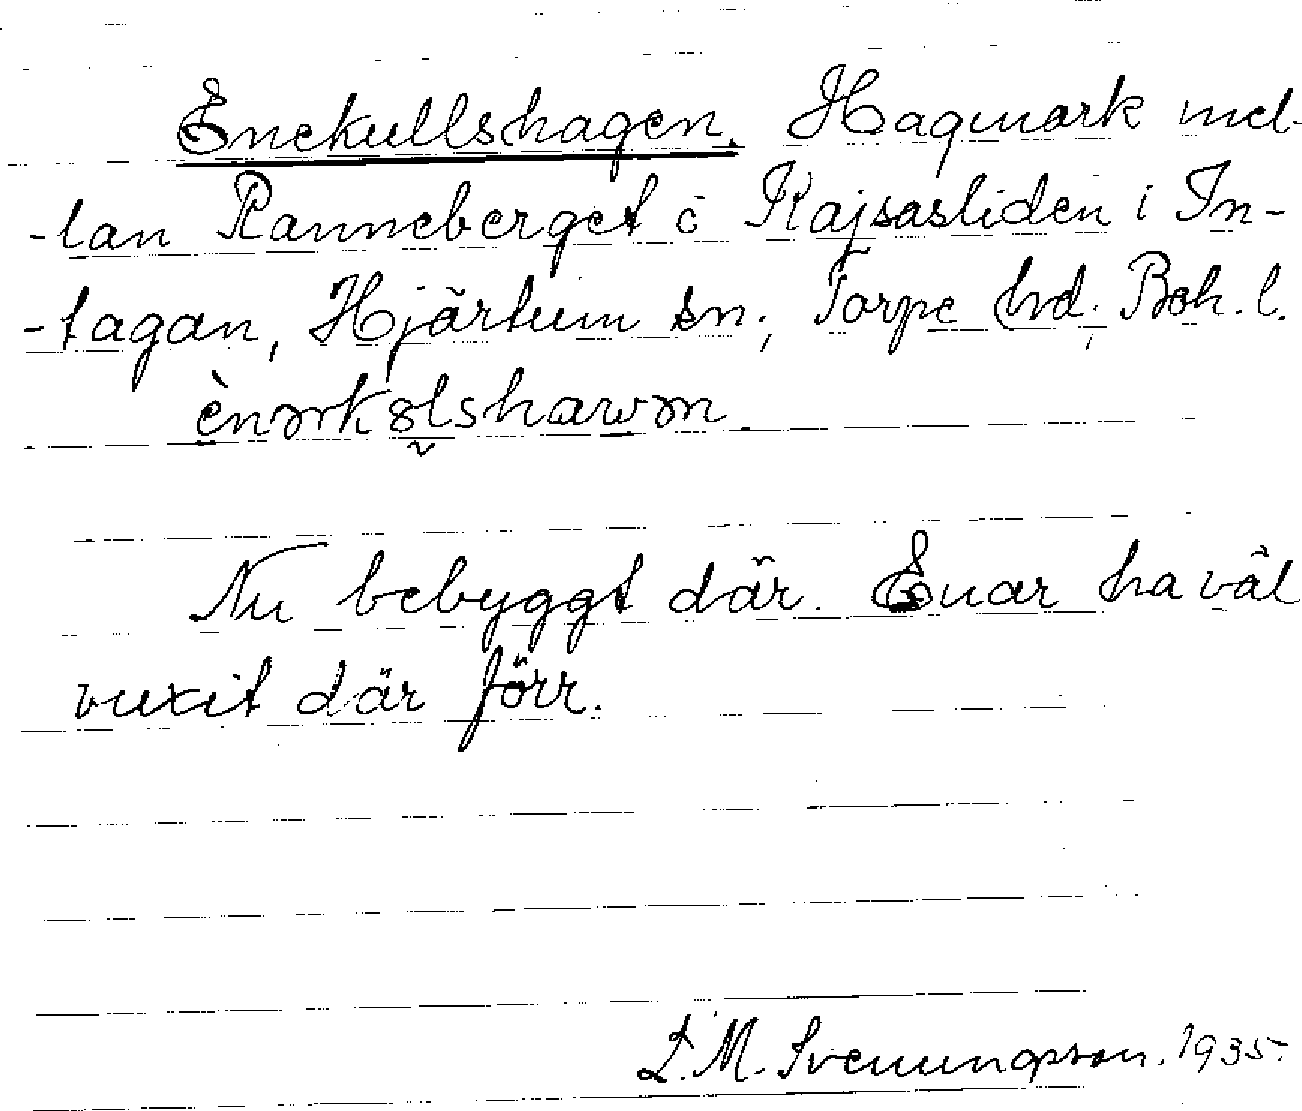 Enekullshagen. Hagmark mel-
-lan Ranneberget o Kajsasliden i In-
-tagan, Hjärtum sn; Torpe hd; Boh. l.
Nu bebyggt där. Enar ha väl
vuxit där förr.
L. M. Svenungsson. 1935.